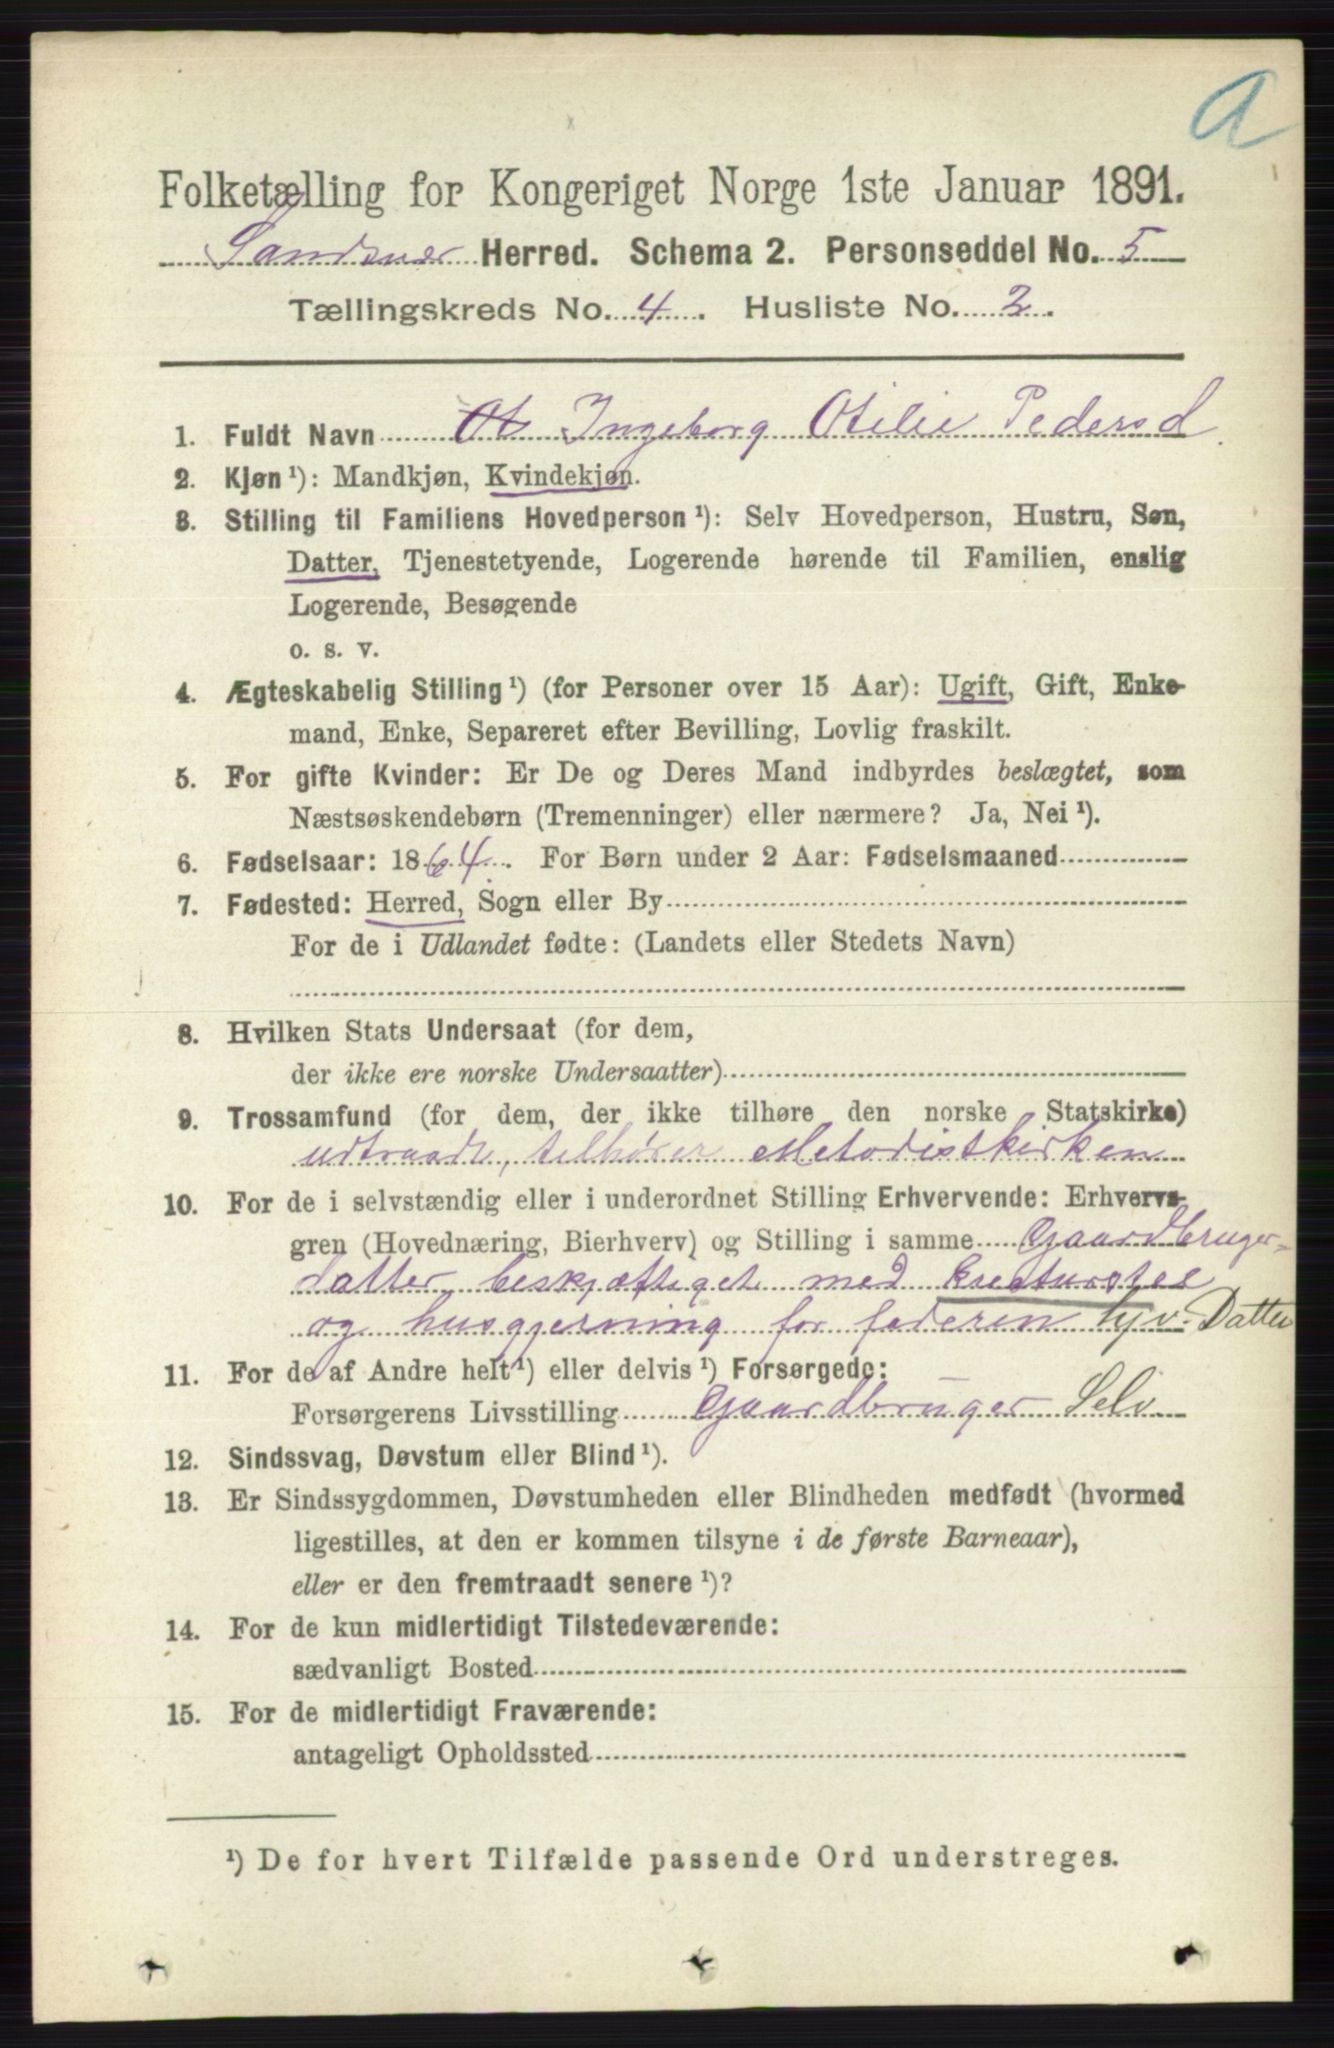 a
Folketælling for Kongeriget Norge 1ste Januar 1891.
Sandsvær Herred. Schema 2. Personseddel No. 5
Tællingskreds No. 4. Husliste No. 2.
1. Fuldt Navn Ot Ingeborg Otilie Pedersd.
2. Kjøn ¹): Mandkjøn, Kvindekjøn.
3. Stilling til Familiens Hovedperson ¹): Selv Hovedperson, Hustru, Søn,
Datter, Tjenestetyende, Logerende hørende til Familien, enslig
Logerende, Besøgende
o. s. v.
4. Ægteskabelig Stilling ¹) (for Personer over 15 Aar): Ugift, Gift, Enke-
mand, Enke, Separeret efter Bevilling, Lovlig fraskilt.
5. For gifte Kvinder: Er De og Deres Mand indbyrdes beslægtet, som
Næstsøskendebørn (Tremenninger) eller nærmere? Ja, Nei ¹).
6. Fødselsaar: 1864. For Børn under 2 Aar: Fødselsmaaned
7. Fødested: Herred, Sogn eller By
For de i Udlandet fødte: (Landets eller Stedets Navn)
8. Hvilken Stats Undersaat (for dem,
der ikke ere norske Undersaatter)
9. Trossamfund (for dem, der ikke tilhøre den norske Statskirke)
udtraadt, tilhører Metodistkirken
10. For de i selvstændig eller i underordnet Stilling Erhvervende: Erhvervs-
gren (Hovednæring, Bierhverv) og Stilling i samme Gaardbruger-
datter beskjæftiget med kreaturstel
og husgjerning for faderen tjv. Datter
11. For de af Andre helt ¹) eller delvis ¹) Forsørgede:
Forsørgerens Livsstilling Gaardbruger Selv
12. Sindssvag, Døvstum eller Blind ¹).
13. Er Sindssygdommen, Døvstumheden eller Blindheden medfødt (hvormed
ligestilles, at den er kommen tilsyne i de første Barneaar),
eller er den fremtraadt senere ¹)?
14. For de kun midlertidigt Tilstedeværende:
sædvanligt Bosted
15. For de midlertidigt Fraværende:
antageligt Opholdssted
¹) De for hvert Tilfælde passende Ord understreges.